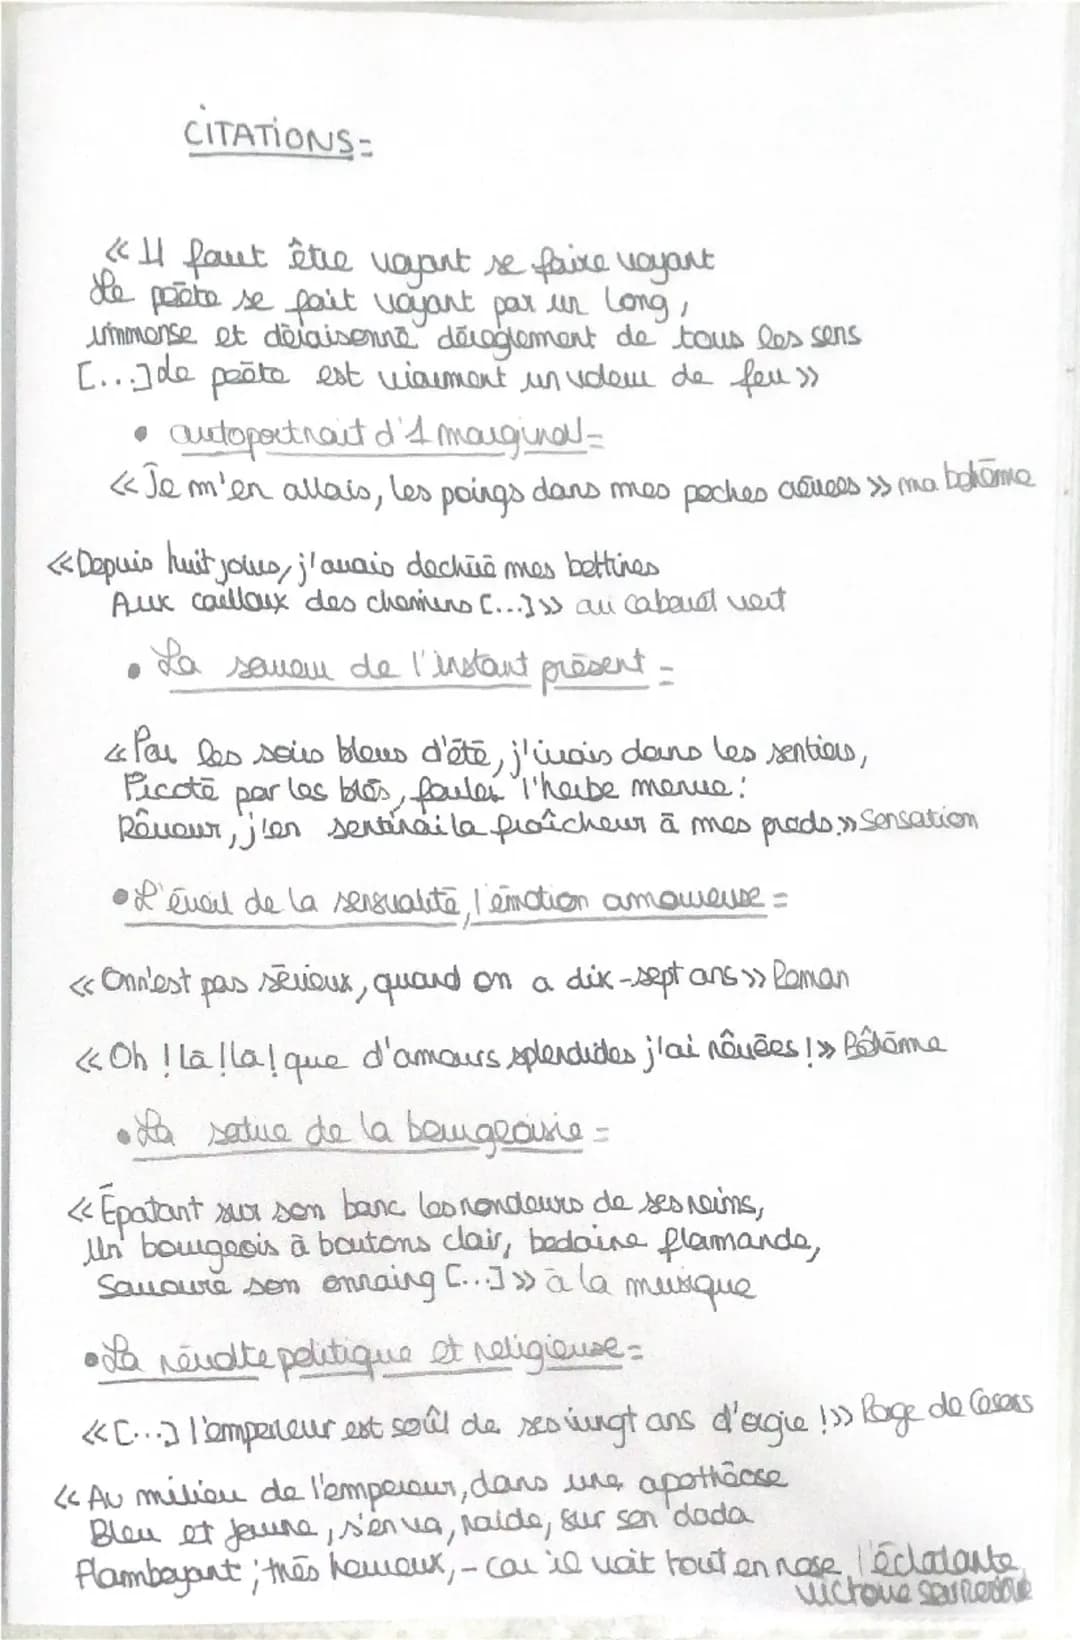 CITATIONS=
« Il faut être voyant se faire voyant
Le poète se fait voyant par un long,
immense et déraisonné déréglement de tous les sens
[...] le poète est vraiment un voleur de feu »
• autoportrait d'1 marginal=
« Je m'en allais, les poings dans mes poches crevées » ma bohème
« Depuis huit jours, j'avais dechiré mes bottines
Aux cailloux des chemins [...] » au cabaret vert
• La saveur de l'instant présent =
« Par les soirs bleus d'été, j'irais dans les sentiers,
Picoté par les blés, fouler l'herbe menue :
Rêveur, j'en sentirai la fraîcheur à mes pieds.» Sensation
• L'éveil de la sensualité, l'émotion amoureuse =
« On n'est pas sérieux, quand on a dix-sept ans » Roman
« Oh ! Là ! la ! que d'amours splendides j'ai rêvées ! » Bohème
• La satire de la bourgeoisie =
« Épatant sur son banc les rondeurs de ses reins,
Un bourgeois à boutons clair, bedaine flamande,
Savoure son onnaing [...] » à la musique
• La révolte politique et religieuse =
« [...] l'empereur est soûl de ses vingt ans d'orgie ! » Rage de Cesars
« Au milieu de l'empereur, dans une apothéose
Bleu et jaune, s'en va, raide, sur son dada
Flamboyant ; très heureux, - car il voit tout en rose, l'éclatante
victoire